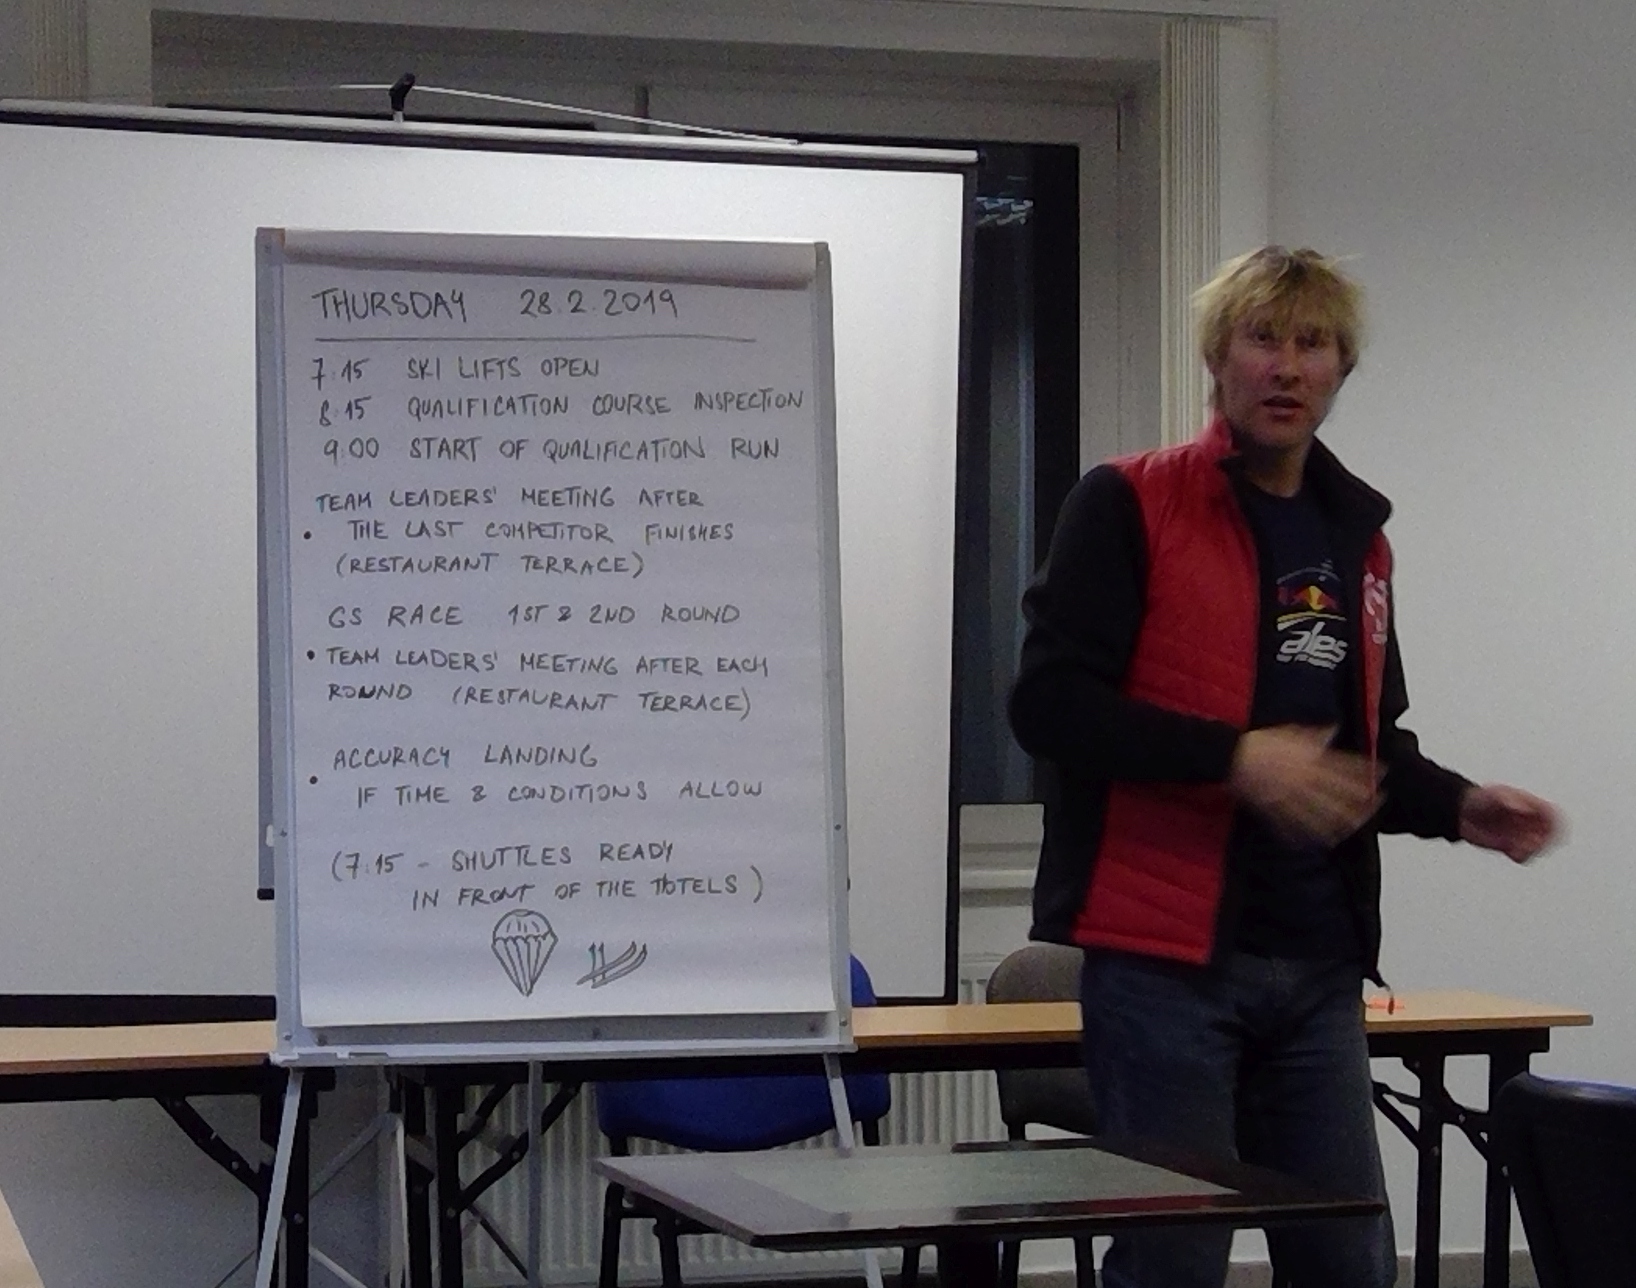 THURSDAY 28.2.2019
7:15 SKI LIFTS OPEN
8:15 QUALIFICATION COURSE INSPECTION
9:00 START OF QUALIFICATION RUN
TEAM LEADERS' MEETING AFTER
• THE LAST COMPETITOR FINISHES
(RESTAURANT TERRACE)
GS RACE 1ST & 2ND ROUND
• TEAM LEADERS' MEETING AFTER EACH
ROUND (RESTAURANT TERRACE)
ACCURACY LANDING
• IF TIME & CONDITIONS ALLOW
(7:15 - SHUTTLES READY
IN FRONT OF THE HOTELS)
ales